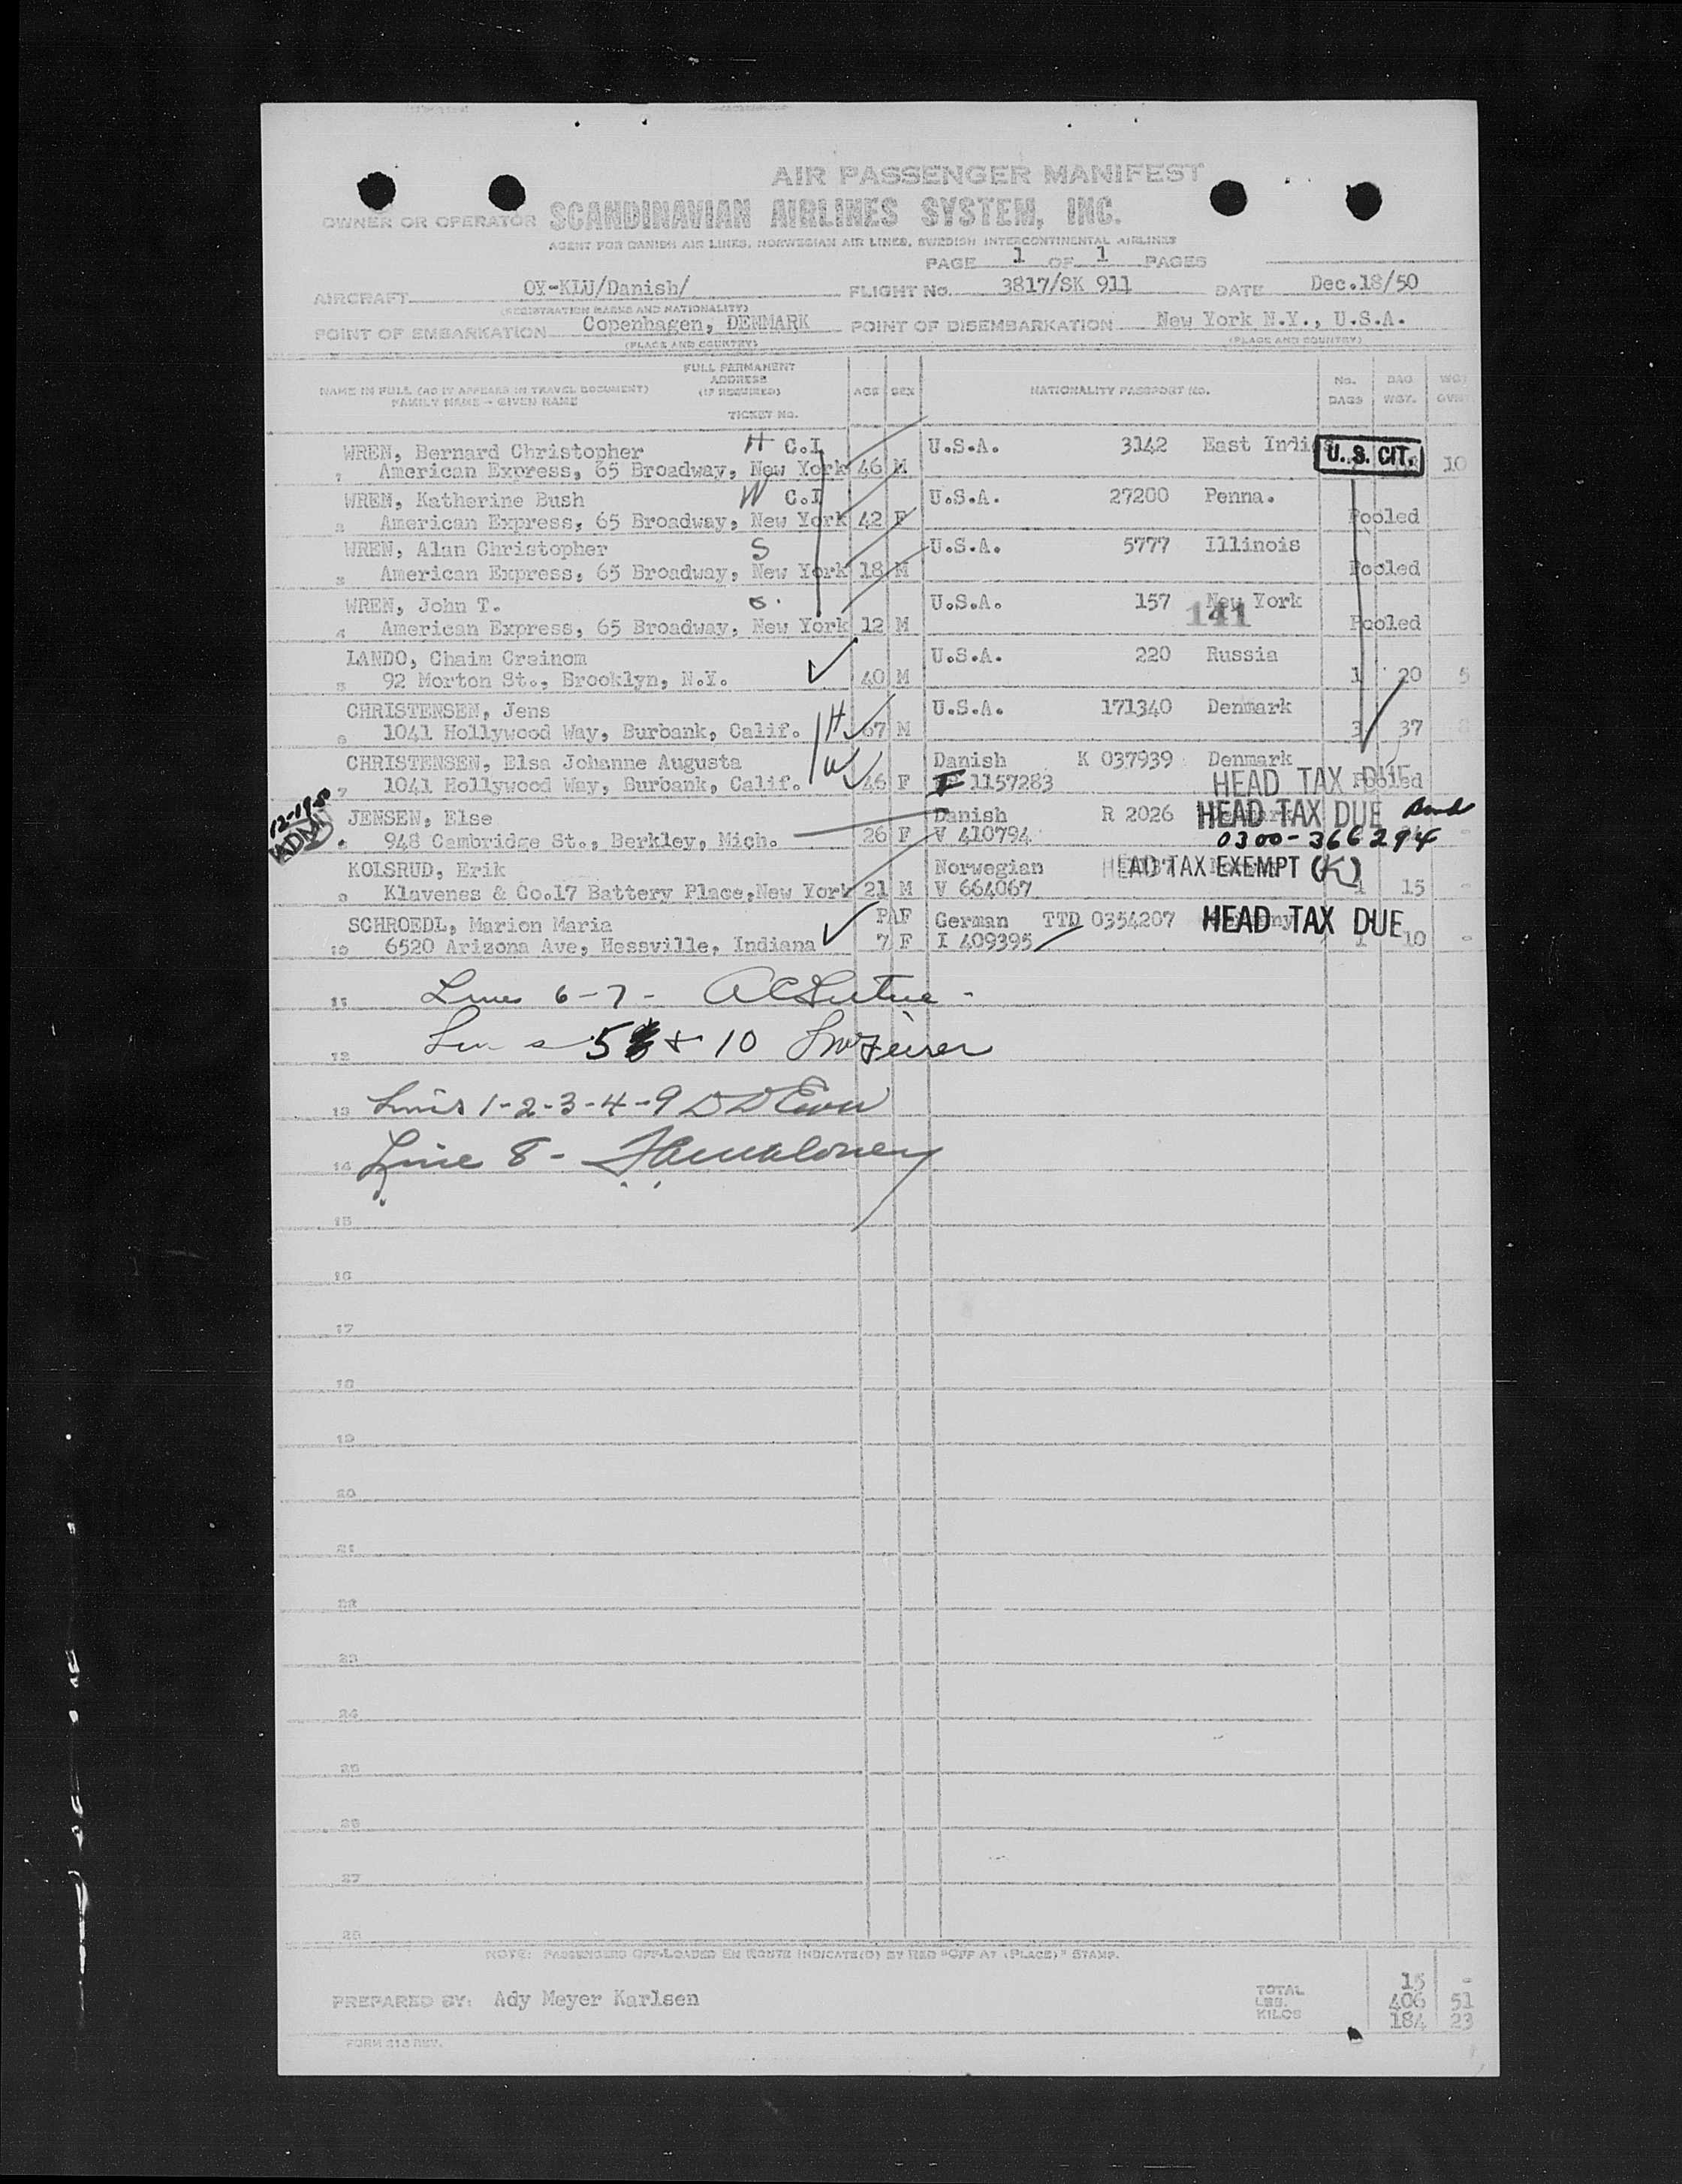 AIR PASSENGER MANIFEST
OWNER OR OPERATOR SCANDINAVIAN AIRLINES SYSTEM, INC.
AGENT FOR DANISH AIR LINES, NORWEGIAN AIR LINES, SWEDISH INTERCONTINENTAL AIRLINES
PAGE 1 OF 1 PAGES
AIRCRAFT OY-KLU/Danish/ FLIGHT No. 3817/SK 911 DATE Dec.18/50
(REGISTRATION MARKS AND NATIONALITY)
POINT OF EMBARKATION Copenhagen, DENMARK POINT OF DISEMBARKATION New York N.Y., U.S.A.
(PLACE AND COUNTRY) (PLACE AND COUNTRY)
NAME IN FULL (AS IT APPEARS IN TRAVEL DOCUMENT) FAMILY NAME - GIVEN NAME FULL PERMANENT ADDRESS (IF REQUIRED) TICKET No. AGE SEX NATIONALITY PASSPORT NO. No. BAGS BAG WGT. WGT
WREN, Bernard Christopher H C.I U.S.A. 3142 East Indies U. S. CIT.
1 American Express, 65 Broadway, New York 46 M 10
WREN, Katherine Bush W C.I U.S.A. 27200 Penna.
2 American Express, 65 Broadway, New York 42 F Pooled
WREN, Alan Christopher S U.S.A. 5777 Illinois
3 American Express, 65 Broadway, New York 18 M Pooled
WREN, John T. S. U.S.A. 157 New York
4 American Express, 65 Broadway, New York 12 M 141 Pooled
LANDO, Chaim Creinom U.S.A. 220 Russia
5 92 Morton St., Brooklyn, N.Y. 40 M 1 20 5
CHRISTENSEN, Jens U.S.A. 171340 Denmark
6 1041 Hollywood Way, Burbank, Calif. H 67 M 3 37 8
CHRISTENSEN, Elsa Johanne Augusta Danish K 037939 Denmark
7 1041 Hollywood Way, Burbank, Calif. W 46 F 1157283 HEAD TAX DUE Pooled
12-19-50 ADM JENSEN, Else Danish R 2026 HEAD TAX DUE
948 Cambridge St., Berkley, Mich. 26 F V 410794 0300-366294 -
KOLSRUD, Erik Norwegian HEAD TAX EXEMPT (K)
9 Klavenes & Co.17 Battery Place,New York 21 M V 664067 1 15 -
SCHROEDL, Marion Maria PAF German TTD 0354207 HEAD TAX DUE
10 6520 Arizona Ave, Hessville, Indiana 7 F I 409395 1 10 -
11 Lines 6-7-
12 Lines 5 & 10
13 Lines 1-2-3-4-9
14 Line 8 - Maloney
15
16
17
18
19
20
21
22
23
24
25
26
27
28
NOTE: PASSENGERS OFF-LOADED EN ROUTE INDICATE(D) BY RED "OFF AT (PLACE)" STAMP.
15 -
PREPARED BY: Ady Meyer Karlsen TOTAL LBS. 406 51
KILOS 184 23
FORM 212 REV.